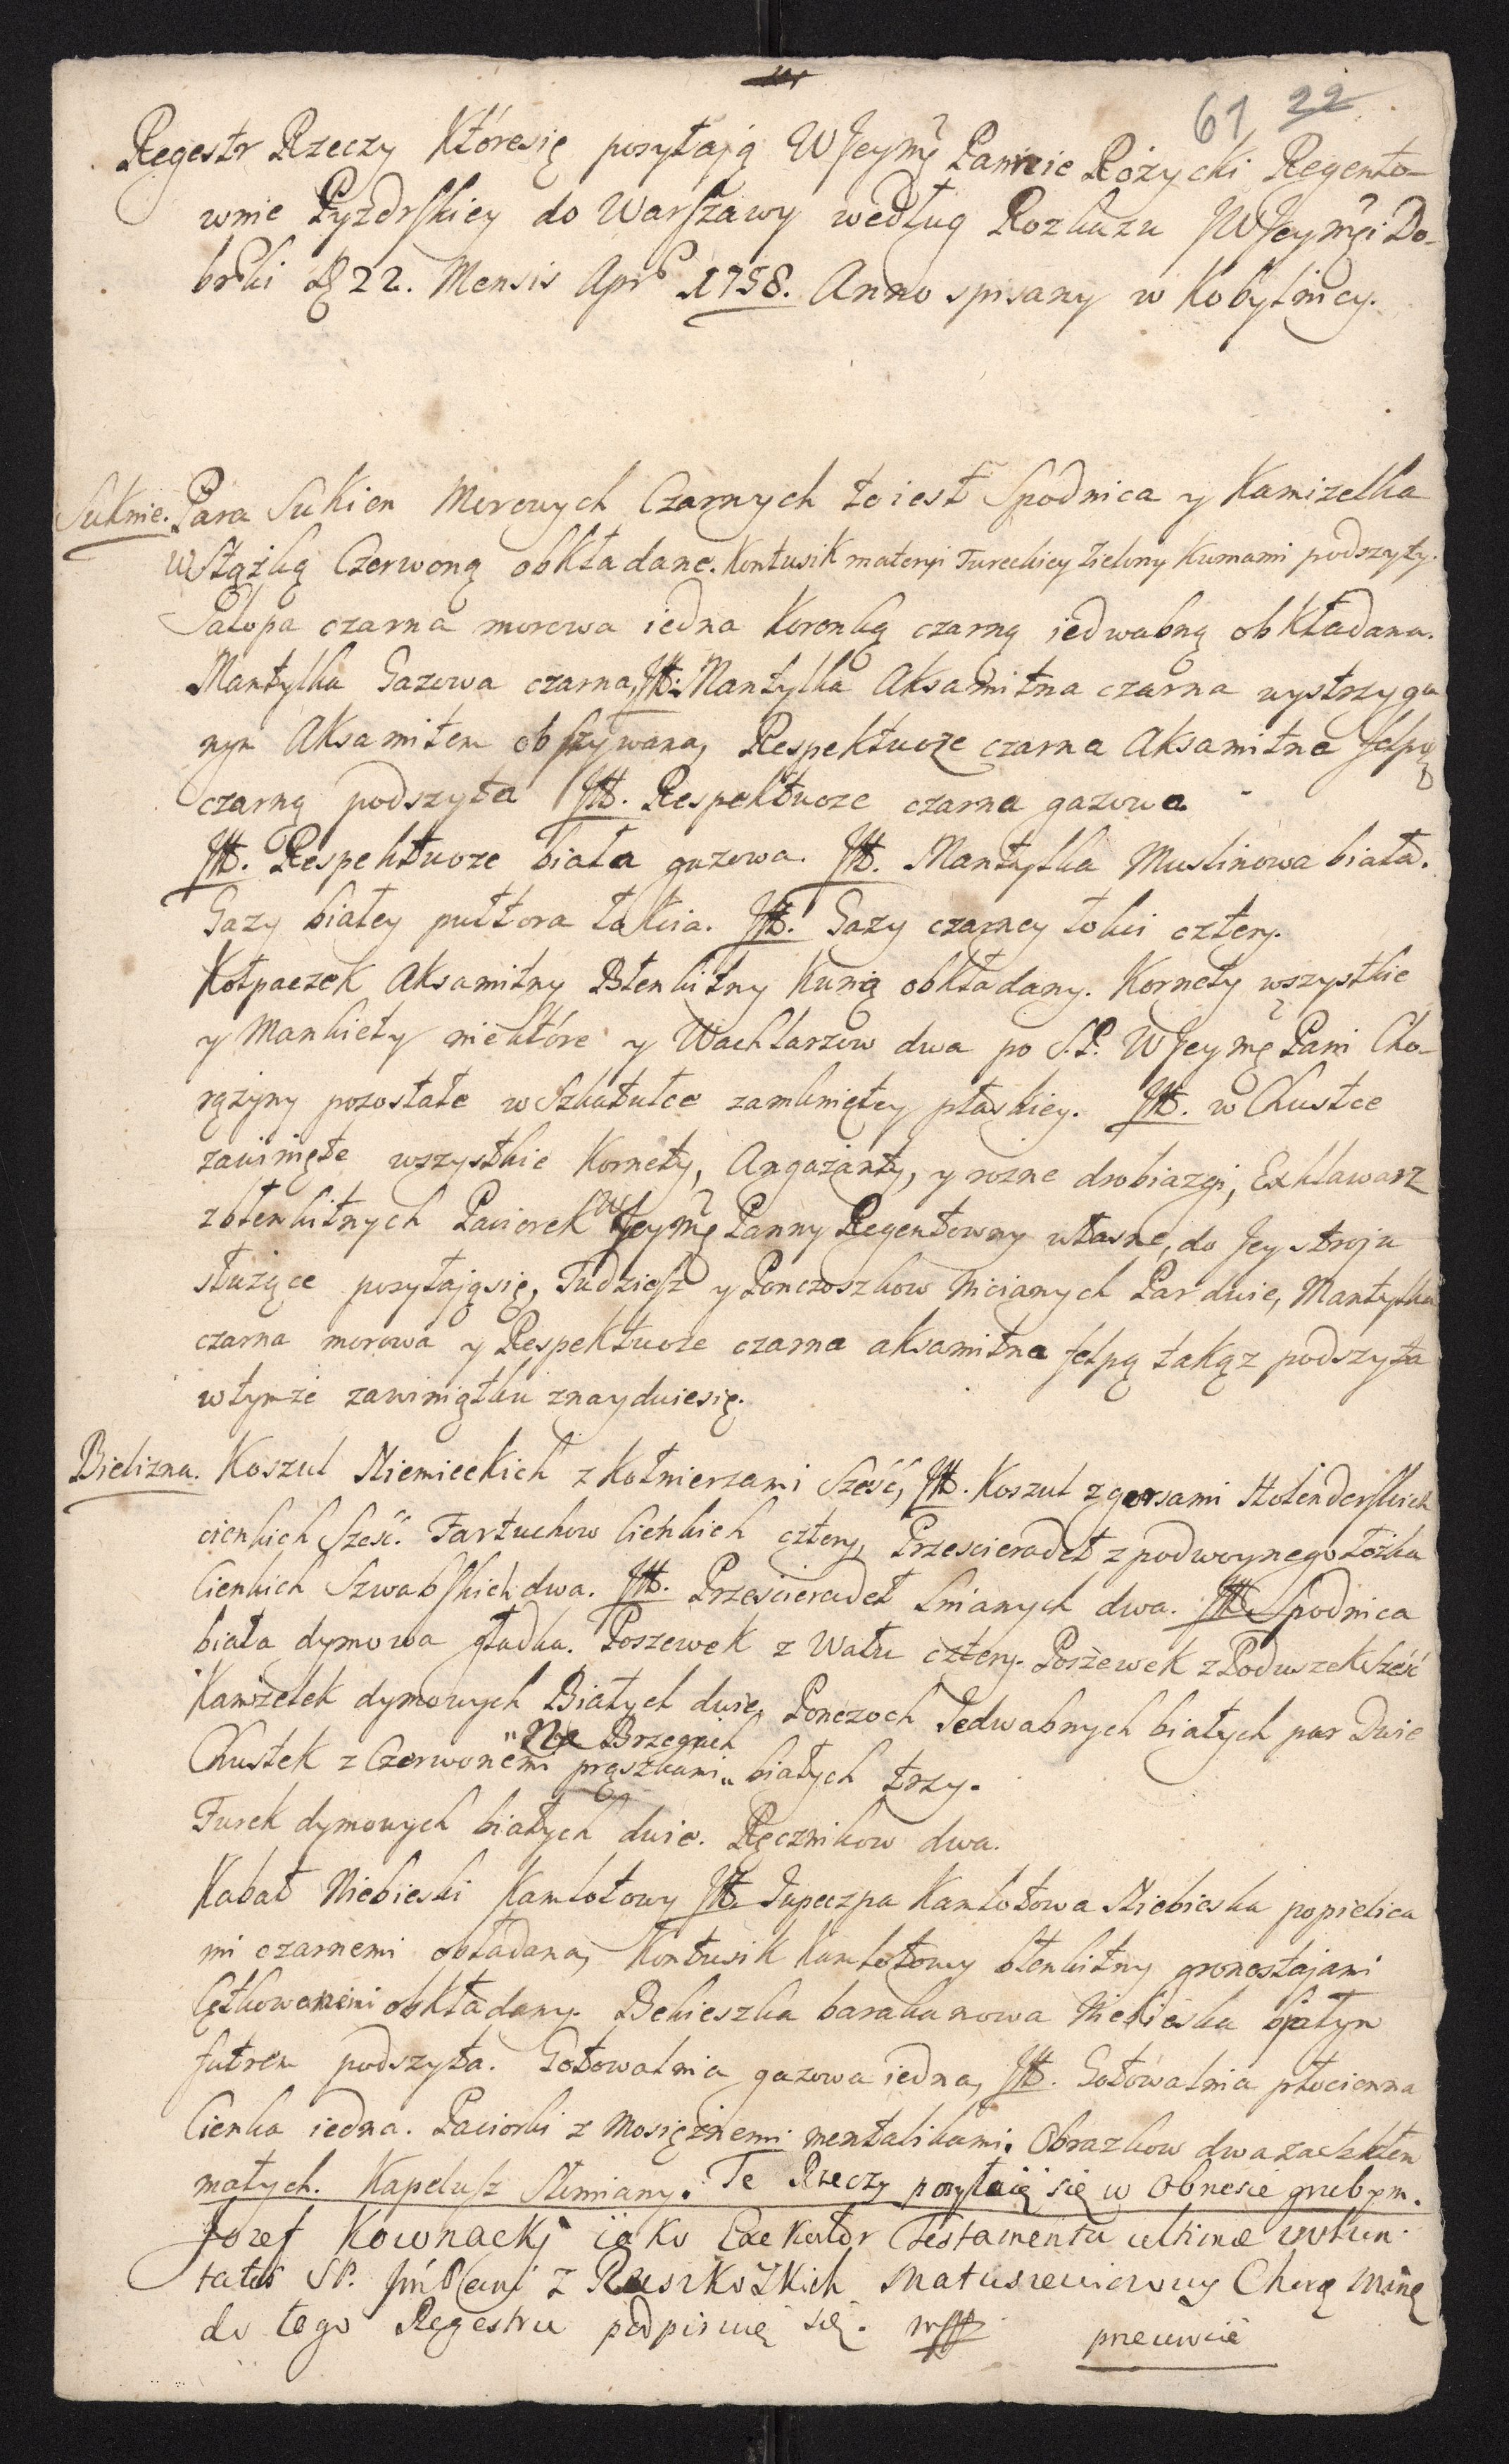 61 22
Regestr Rzeczy Któresię posyłają WJeymę Pannie Różycki Regento-
wnie Pyzdrskiey do Warszawy według Rozkazu JWJeymci Do-
brski D 22. Mensis Apr 1758. Anno spisany w Kobylnicy.
Suknie. Para Sukien Morowych Czarnych to iest Spodnica y Kamizelka
Wstążką Czerwoną obkładane. Kontusik materyi Tureckiey Zielony Kunami podszyty.
Salopa czarna morowa iedna Koronką czarną iedwabną obkładana.
Mantylka Gazowa czarna, Itt. Mantylka Aksamitna czarna wystrzyga
nym Aksamitem obszywana, Respektuoze czarna Aksamitna felpą
czarną podszyta Itt. Respektuoze czarna gazowa
Itt. Respektuoze biała gazowa. Itt. Mantylka Muslinowa biała.
Gazy białey pułtora łokcia. Itt. Gazy czarney łokci cztery.
Kołpaczek Aksamitny Błenkitny Kunią obkładany. Kornety wszystkie
y Mankiety niektóre y Wachlarzow dwa po S.P. WJeymę Pani Cho-
rążyny pozostałe w Szkatułce zamkniętey płaskiey. Itt. w Chustce
zawinięte wszystkie Kornety, Angażanty, y rozne drobiazgi, Exklawarz
z błenkitnych Paciorek WJeymę Panny Regentowny własne, do Jey stroju
służące posyłaiąsię, Tudziesz y Ponczoszkow Nicianych Par dwie, Mantylka
czarna morowa y Respektuoze czarna aksamitna felpą takąz podszyta
w tymże zawiniątku znayduiesię.
Bielizna. Koszul Niemieckich z Kołnierzami Sześć, Itt. Koszul z gorsami Holenderskich
cienkich Sześć. Fartuchow Cieńkich cztery, Prześcieradeł z podwoynego Łóżka
Cienkich Szwabskich dwa. Itt. Prześcieradeł Lnianych dwa. Itt. Spodnica
biała dymowa gładka. Poszewek z Wału cztery. Poszewek z Poduszek Sześć
Kamizelek dymowych Białych dwie, Ponczoch Jedwabnych białych par Dwie
Na Brzegach
Chustek z Czerwonemi prąszkami białych trzy.
Turek dymowych białych dwie. Ręcznikow dwa.
Kabat Niebieski Kamlotowy Itt. Jupeczpa Kamlotowa Niebieska popielica
mi czarnemi obładana, Kontusik Kamlotowy błenkitny gronostajami
Cętkowanemi obkładany. Bekieszka barakanowa Niebieska białym
futrem podszyta. Gotowalnia gazowa iedna, Itt. Gotowalnia płocienna
Cienka iedna. Paciorki z Mosiężnemi mentalikami. Obrazkow dwa za szkłem
małych. Kapelusz Słomiany. Te Rzeczy posyłaią się w Obrusie grubym.
Jozef Kownacki iako Exekutor Testamentu ultimae volun-
tatis SP. Jmć Pani z Ruszkoskich Matuszewicowy Chorążyny
do tego Regestru podpisuię się. mpp